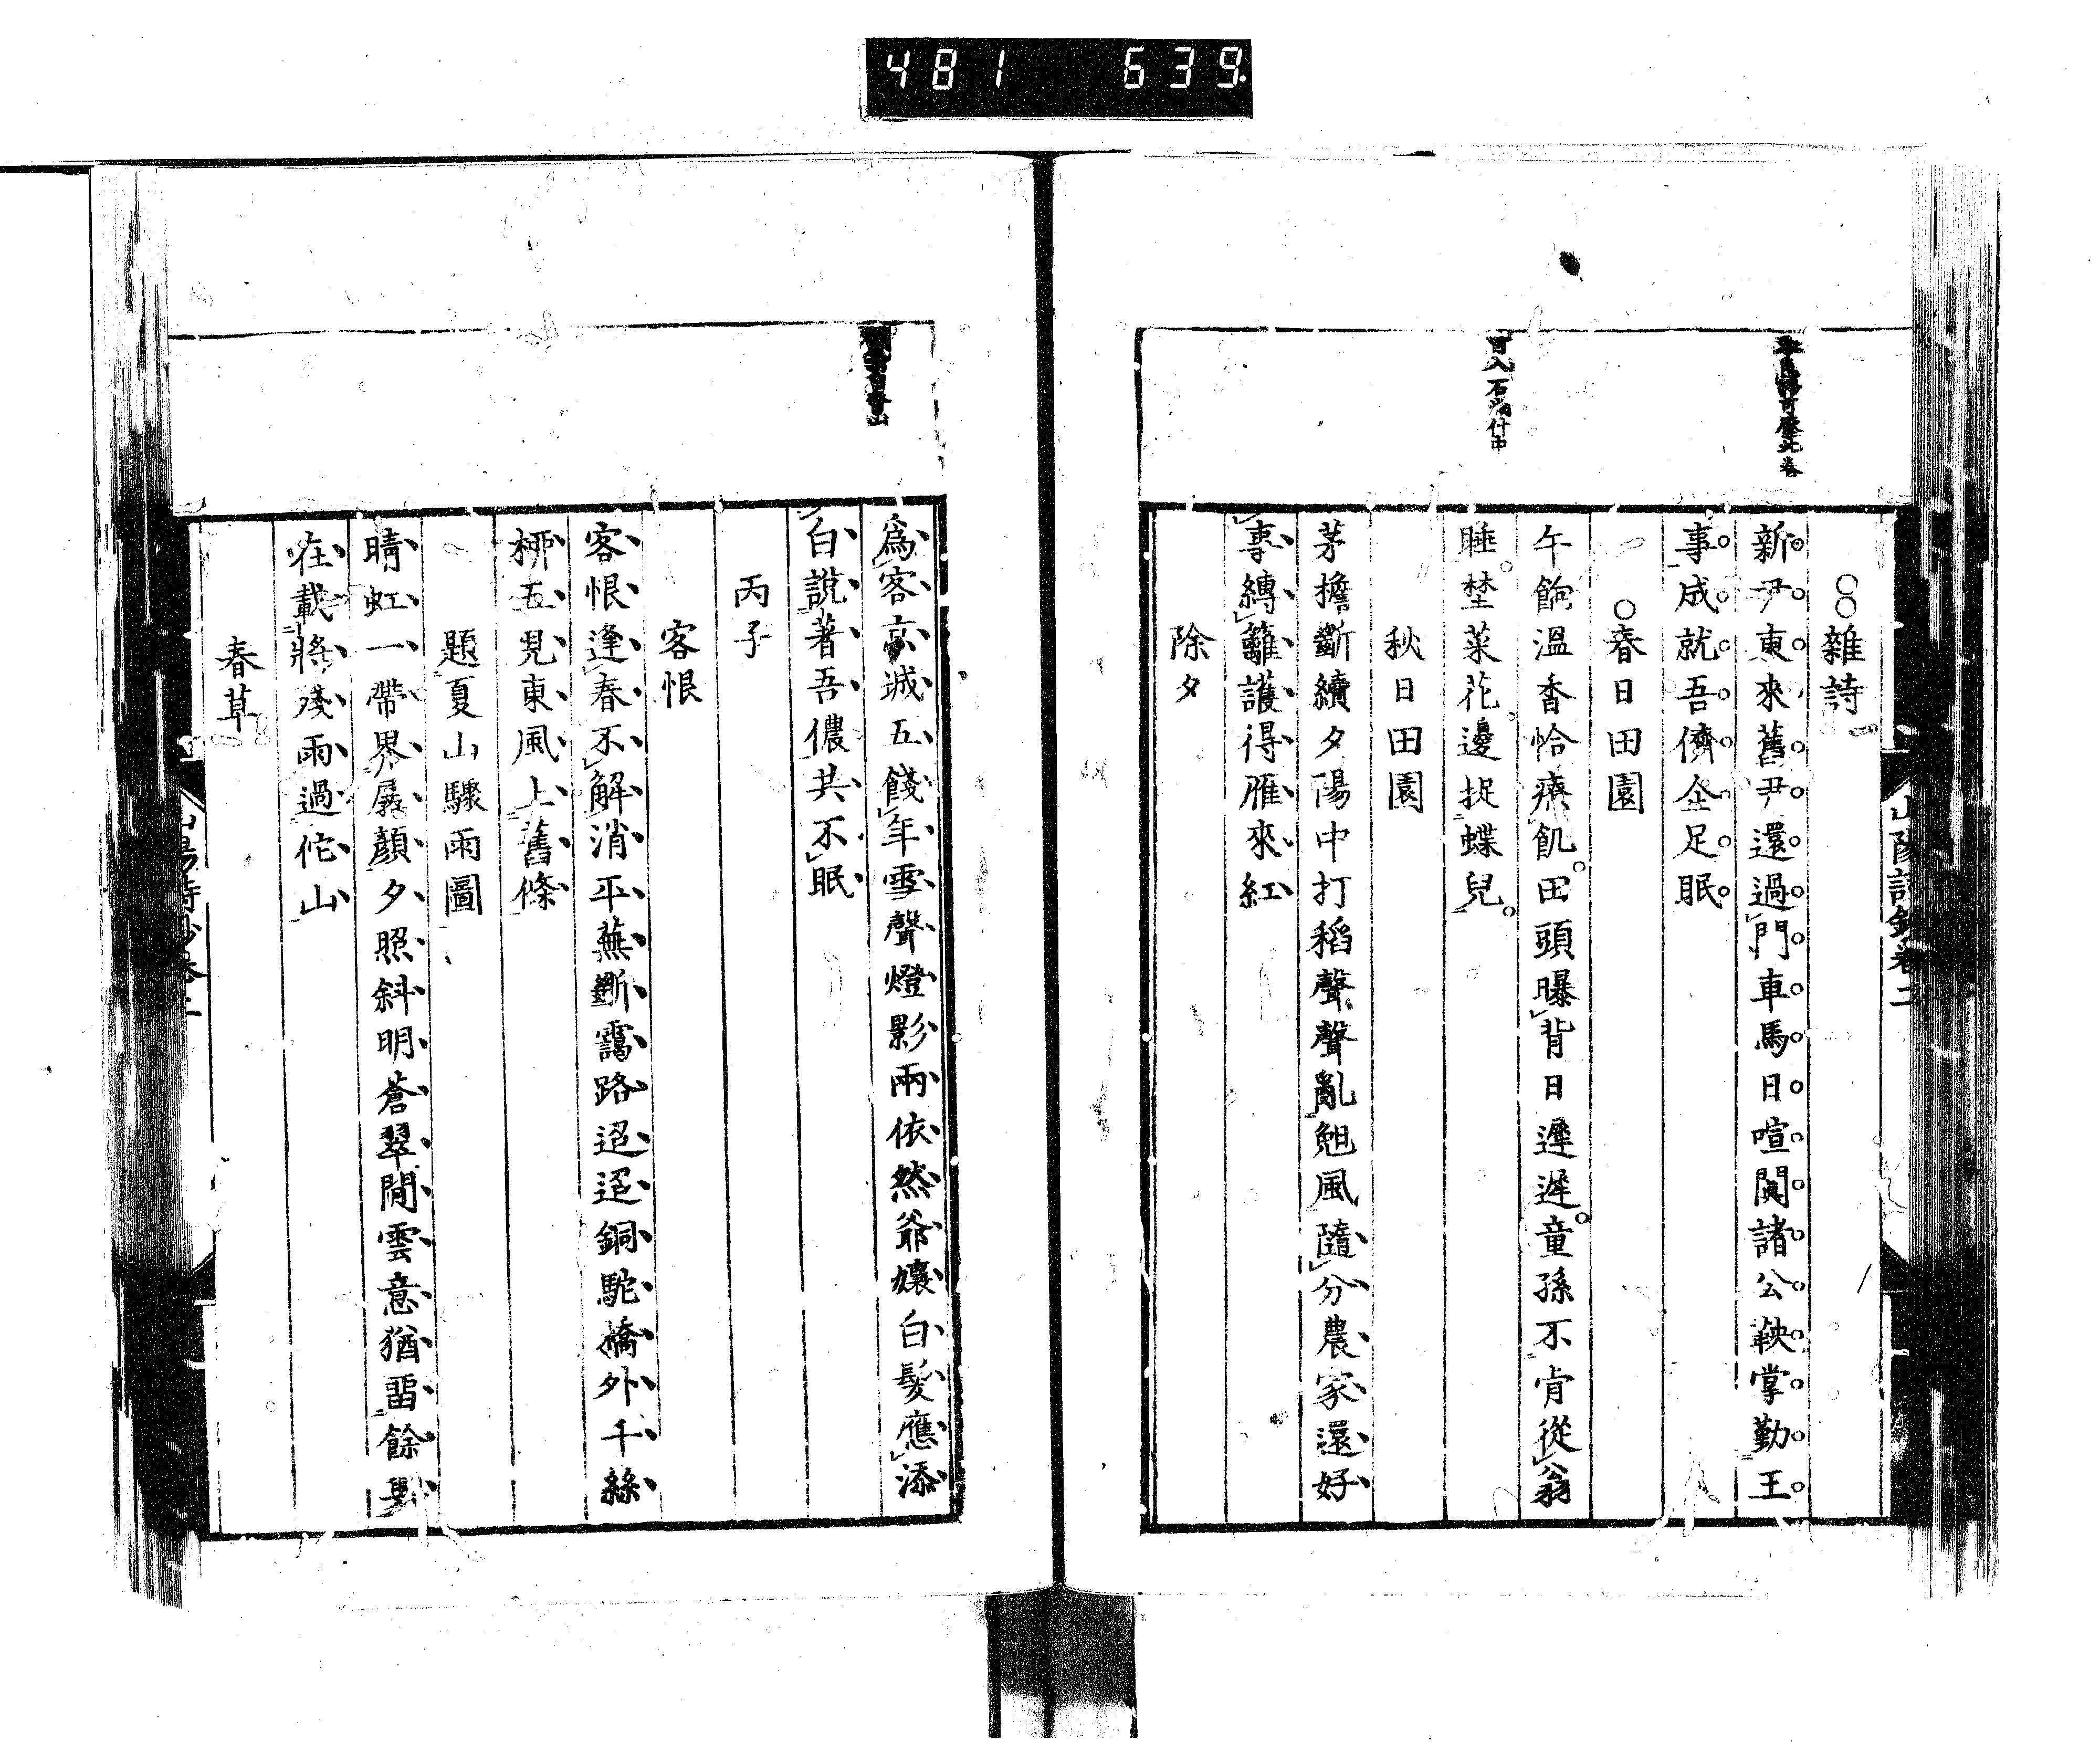 481 639
雜詩
新尹東來舊尹還過門車馬日喧闐諸公鞅掌勤王
事成就吾儕企足眠
春日田園
午餉溫香恰療飢田頭曝背日遲遲童孫不肯從翁
睡埜菜花邊捉蝶兒
秋日田園
茅擔斷續夕陽中打稻聲聲亂颭風隨分農家還好
事縳籬護得雁來紅
除夕
可入石湖什中
爲客京城五餞年雪聲燈影兩依然爺孃白髮應添
白說著吾儂共不眠
丙子
客恨
客恨逢春不解消平蕪斷靄路迢迢銅駝橋外千絲
桺五見東風上舊條
題夏山驟雨圖
晴虹一帶界孱顏夕照斜明蒼翠間雲意猶畱餘興
在載將殘雨過佗山
春草